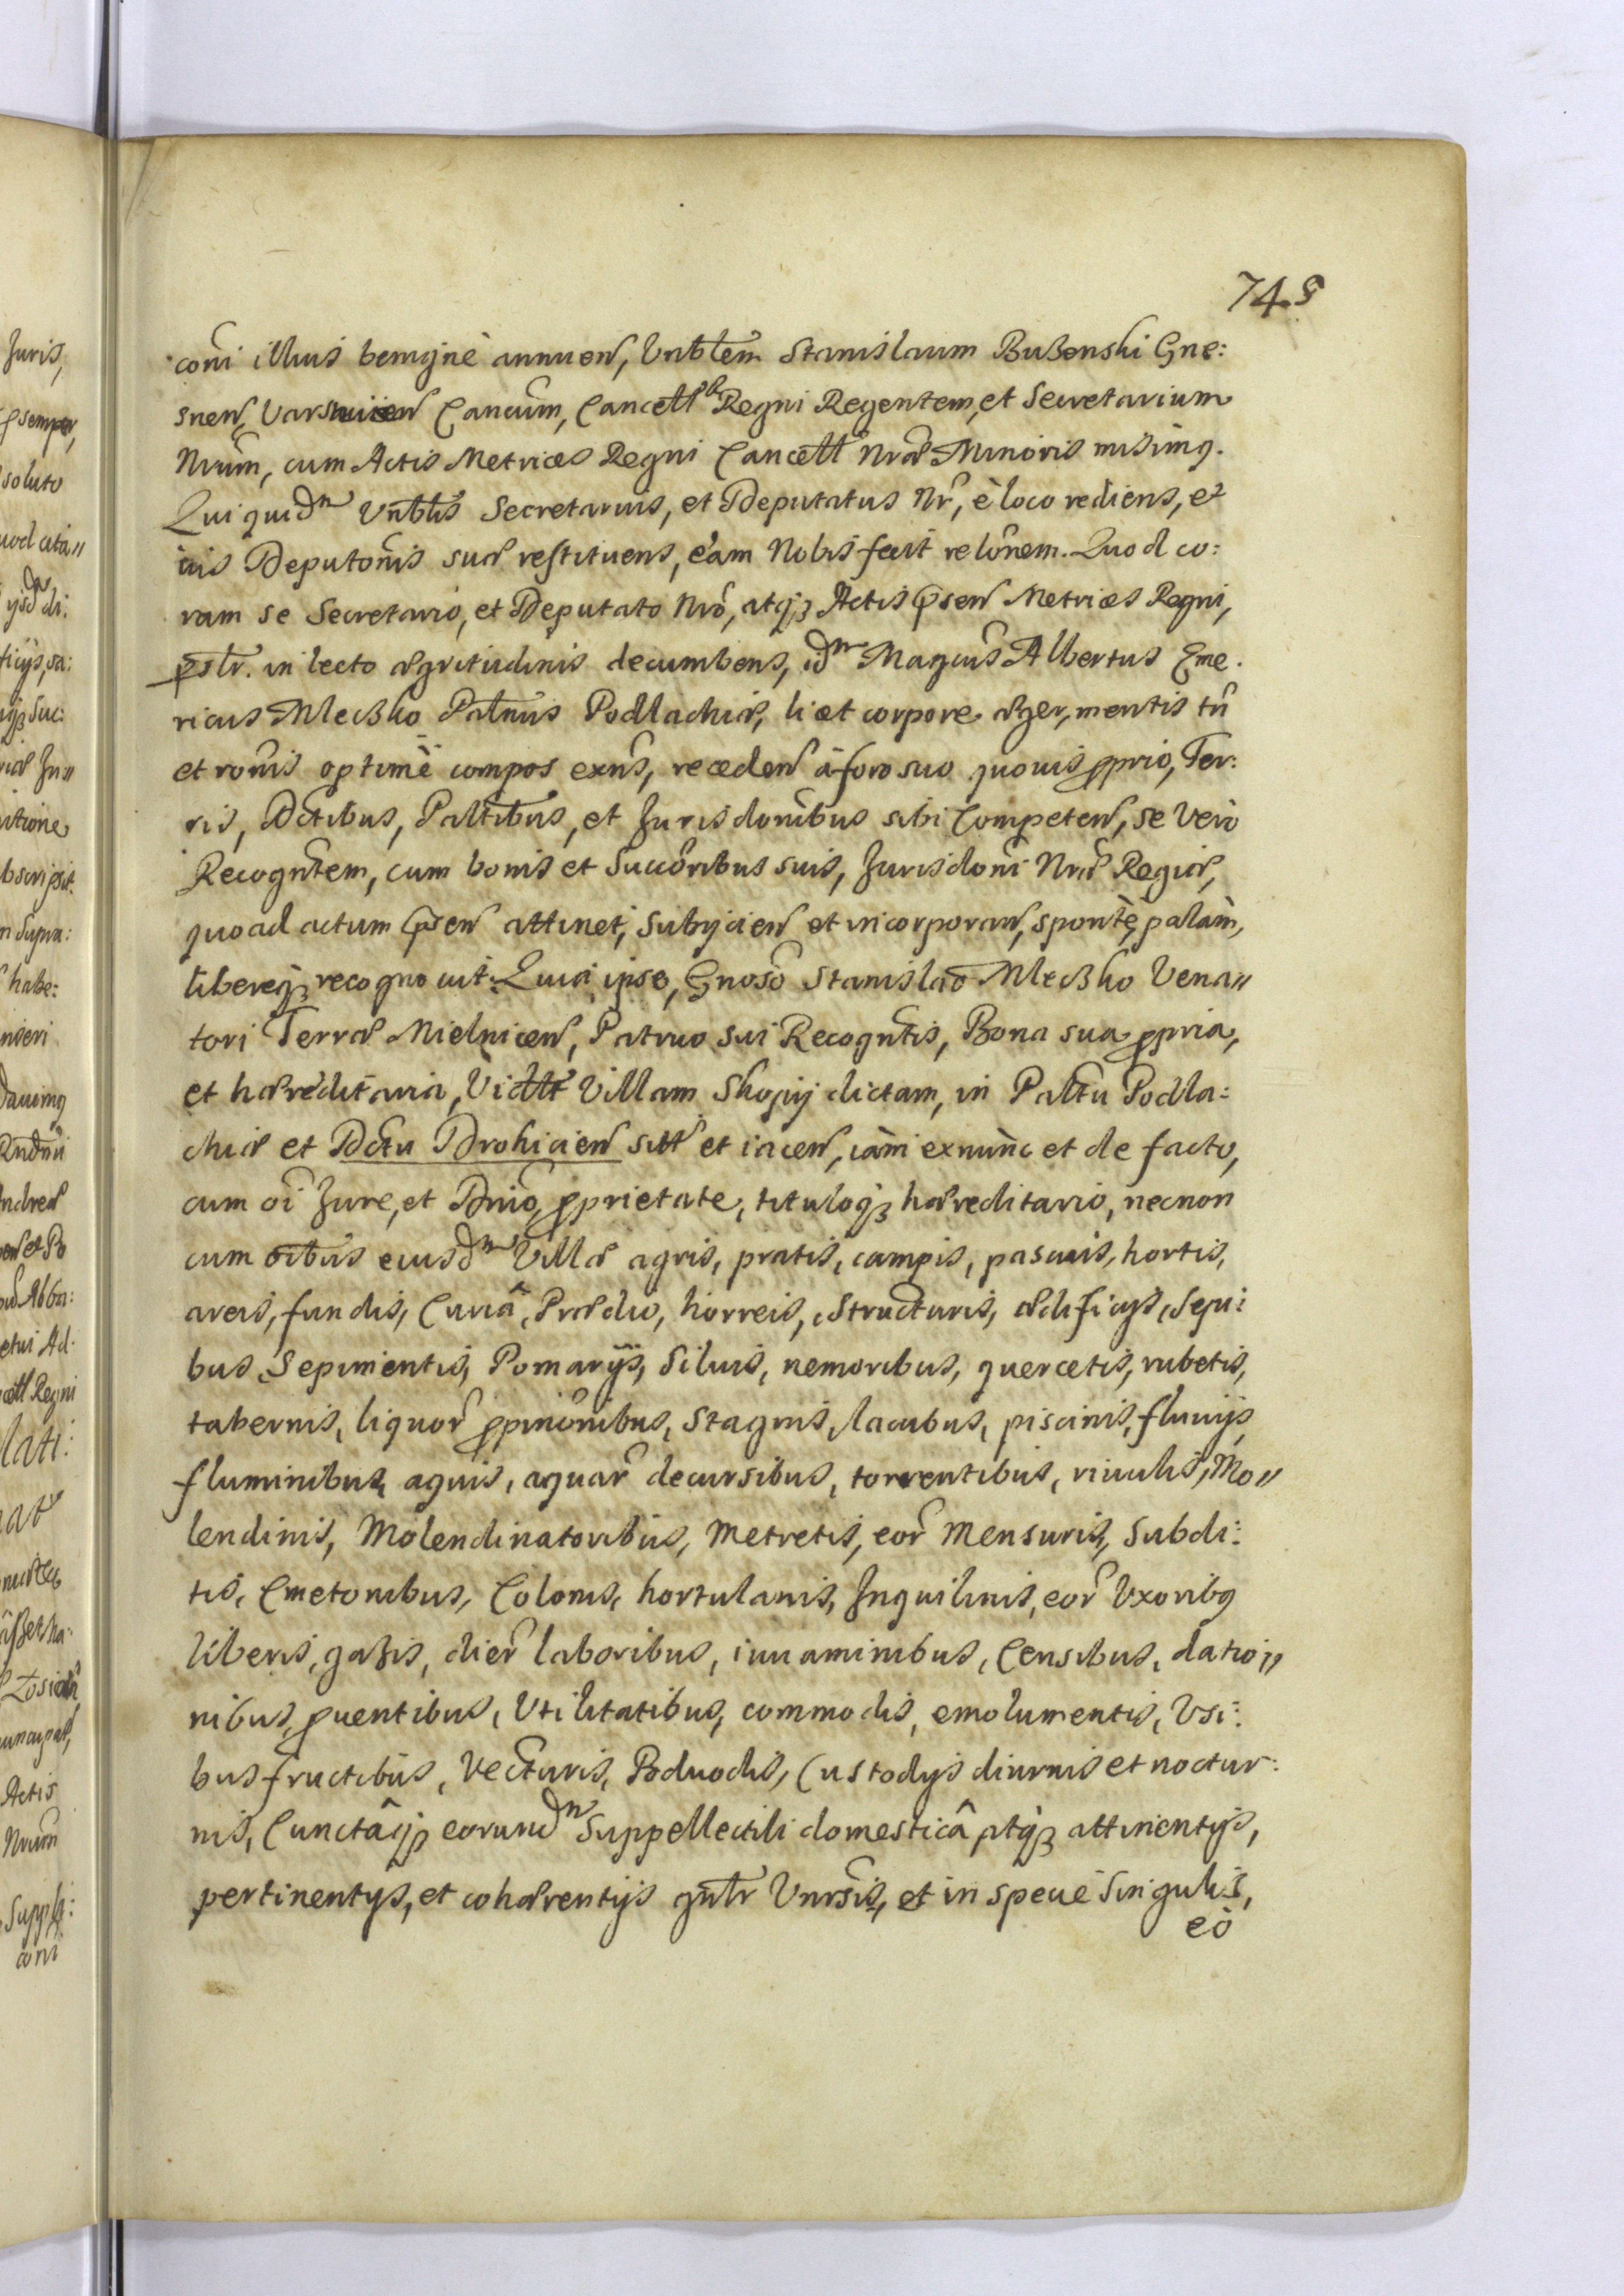 74.8
coni illius benignè annuen, Vnblem Stanislaum Buženski Gne:
snen, Varsauien Cancum, Cancell Regni Regentem, et Secretarium
Nrum, cum Actis Metrices Regni Cancell Nræ Minoris misimq.
Qui quidm Vnblis Secretarius, et Deputatus Nr, è loco rediens, et
uis Deputonis suæ restituens, eam Nobis fecit relonem. Quod co:
ram se Secretario, et Deputato Nro, atq3 Actis psen Metrices Regni,
pslr. in lecto ægritudinis decumbens, idm Magcus Albertus Eme.
ricus Mleczko Palnus Podlachiæ, licet corpore æger, mentis tn
et ronis optimè compos exns, receden à foro suo quouis pprio, Ter:
ris, Dctibus, Paltibus, et Jurisdonibus sibi Competen, se Vero
Recogntem, cum bonis et Succoribus suis, Jurisdoni Nræ Regiæ,
quoad actum psen attinet, subijcien et incorporan, spontè, palàm,
libereq3 recognouit. Quia ipse, Gnoso Stanislao Mleczko Vena"
tori Terræ Mielnicen, Patruo sui Recogntis, Bona sua ppria,
et hæreditaria, Vidtt Villam Skopij dictam, in Paltu Podla:
chiæ et Dctu Drohicien sitt et iacen, iam exnunc et de facto,
cum oi Jure, et Dnio, pprietate, tituloq3 hæreditario, necnon
cum oibus eiusdm Villæ agris, pratis, campis, pascuis, hortis,
areis, fundis, Curiâ, Prædio, horreis, structuris, ædificijs, sepi:
bus Sepimentis, Pomarijs, Siluis, nemoribus, quercetis, rubetis,
tabernis, liquor ppinonibus, Stagnis, lacubus, piscinis, fluuijs,
fluminibus, aquis, aquar decursibus, torrentibus, riuulis, Mo"
lendinis, Molendinatoribus, Metretis, eor Mensuris, Subdi:
tis, Cmetonibus, Colonis, hortulanis, Inquilinis, eor Vxoribq
liberis, gazis, dier laboribus, iuuaminibus, Censibus, datio"
nibus, puentibus, Vtilitatibus, commodis, emolumentis, Vsi:
bus fructibus, Vecturis, Poduodis, Custodijs diurnis et noctur:
nis, Cunctâq3 eorundm Suppellectili domesticâ atq3 attinentijs,
pertinentijs, et cohærentijs gnlr Vnrsis, et in specie Singulis,
eò